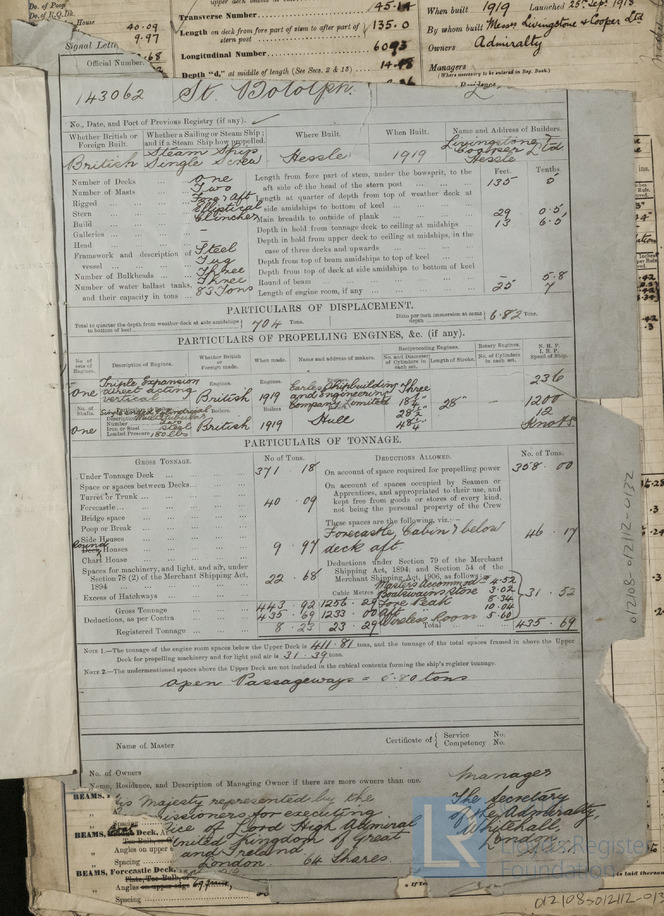 Do. of Poop
Do. of R.Q.Dk.
House
40.09
9.97
.68
Transverse Number
45.14
Length on deck from fore part of stem to after part of stern post
135.0
Longitudinal Number
6093
Depth "d," at middle of length (See Secs. 2 & 13)
14.48
When built 1919 Launched 25th Sep. 1918
By whom built Messrs Livingstone & Cooper Ltd
Owners Admiralty
Managers
(Where necessary to be entered in Reg. Book.)
Signal Lette
Official Number.
143062
St. Botolph.
No., Date, and Port of Previous Registry (if any).
Whether British or Foreign Built.
Whether a Sailing or Steam Ship; and if a Steam Ship how propelled.
Where Built.
When Built.
Name and Address of Builders.
British
Steam Ship
Single Screw
Hessle
1919
Livingstone &
Cooper Ltd
Hessle
Number of Decks One
Number of Masts Two
Rigged Fore & Aft
Stern Elliptical
Build Clincher
Galleries —
Head
Framework and description of vessel Steel
Tug
Number of Bulkheads Three
Number of water ballast tanks, and their capacity in tons Three
85 Tons
Feet. Tenths
Length from fore part of stem, under the bowsprit, to the aft side of the head of the stern post 135 0
Length at quarter of depth from top of weather deck at side amidships to bottom of keel
Main breadth to outside of plank 29 0.5
Depth in hold from tonnage deck to ceiling at midships 13 6.5
Depth in hold from upper deck to ceiling at midships, in the case of three decks and upwards
Depth from top of beam amidships to top of keel
Depth from top of deck at side amidships to bottom of keel
Round of beam — 5.8
Length of engine room, if any 25 7
PARTICULARS OF DISPLACEMENT.
Total to quarter the depth from weather deck at side amidships to bottom of keel 704 Tons.
Ditto per inch immersion at same depth 6.82 Tons.
PARTICULARS OF PROPELLING ENGINES, &c. (if any).
No. of sets of Engines.
Description of Engines.
Whether British or Foreign made.
When made.
Name and address of makers.
Reciprocating Engines.
No. and Diameter of Cylinders in each set.
Length of Stroke.
Rotary Engines.
No. of Cylinders in each set.
N. H. P.
I. H. P.
Speed of Ship.
One
Triple Expansion
direct acting
vertical
Engines.
British
Engines.
1919
Earles Shipbuilding
and Engineering
Company Limited
Hull
Three
28"
—
236
1200
12
Knots
No. of Shafts.
One
Number Two
Iron or Steel Steel
Loaded Pressure 180 lbs
Boilers.
British
Boilers.
1919
PARTICULARS OF TONNAGE.
GROSS TONNAGE.
No. of Tons.
DEDUCTIONS ALLOWED.
No. of Tons.
Under Tonnage Deck 371 18
Space or spaces between Decks
Turret or Trunk
Forecastle 40 . 09
Bridge space
Poop or Break
Side Houses
Round
Deck Houses 9 . 97
Chart House
Spaces for machinery, and light, and air, under Section 78 (2) of the Merchant Shipping Act, 1894 22 . 68
Excess of Hatchways
Cubic Metres
Gross Tonnage 443 . 92 1256 . 29
Deductions, as per Contra 435 . 69 1233 . 00
Registered Tonnage 8 . 23 23 . 29
On account of space required for propelling power 358 . 00
On account of spaces occupied by Seamen or Apprentices, and appropriated to their use, and kept free from goods or stores of every kind, not being the personal property of the Crew
These spaces are the following, viz.:—
Forecastle, Cabin & below
deck aft. 46 . 17
Deductions under Section 79 of the Merchant Shipping Act, 1894, and Section 54 of the Merchant Shipping Act, 1906, as follows:
Masters Accommod. 4.52
Boatswains Store 3.02
Fore Peak 8.34
Aft 10.04
Wireless Room 5.60
31 . 52
Total 435 . 69
NOTE 1.—The tonnage of the engine room spaces below the Upper Deck is 411.81 tons, and the tonnage of the total spaces framed in above the Upper Deck for propelling machinery and for light and air is 31.39 tons.
NOTE 2.—The undermentioned spaces above the Upper Deck are not included in the cubical contents forming the ship's register tonnage.
Open Passageways = 6.80 tons
Name of Master
Certificate of { Service No.
Competency No.
No. of Owners
Name, Residence, and Description of Managing Owner if there are more owners than one.
His Majesty represented by the
for executing
of Lord High Admiral
United Kingdom of Great
and Ireland
London. 64 Shares.
Manager
The Secretary
of the Admiralty,
Whitehall,
London
BEAMS,
Spacing
BEAMS, Deck,
Angles on upper
Spacing
BEAMS, Forecastle Deck,
Plate, Tee Bulb, or
Angles on upper edge
Spacing
LR
Lloyd's Register
Foundation
012108-012112-0132
012108-012112-013